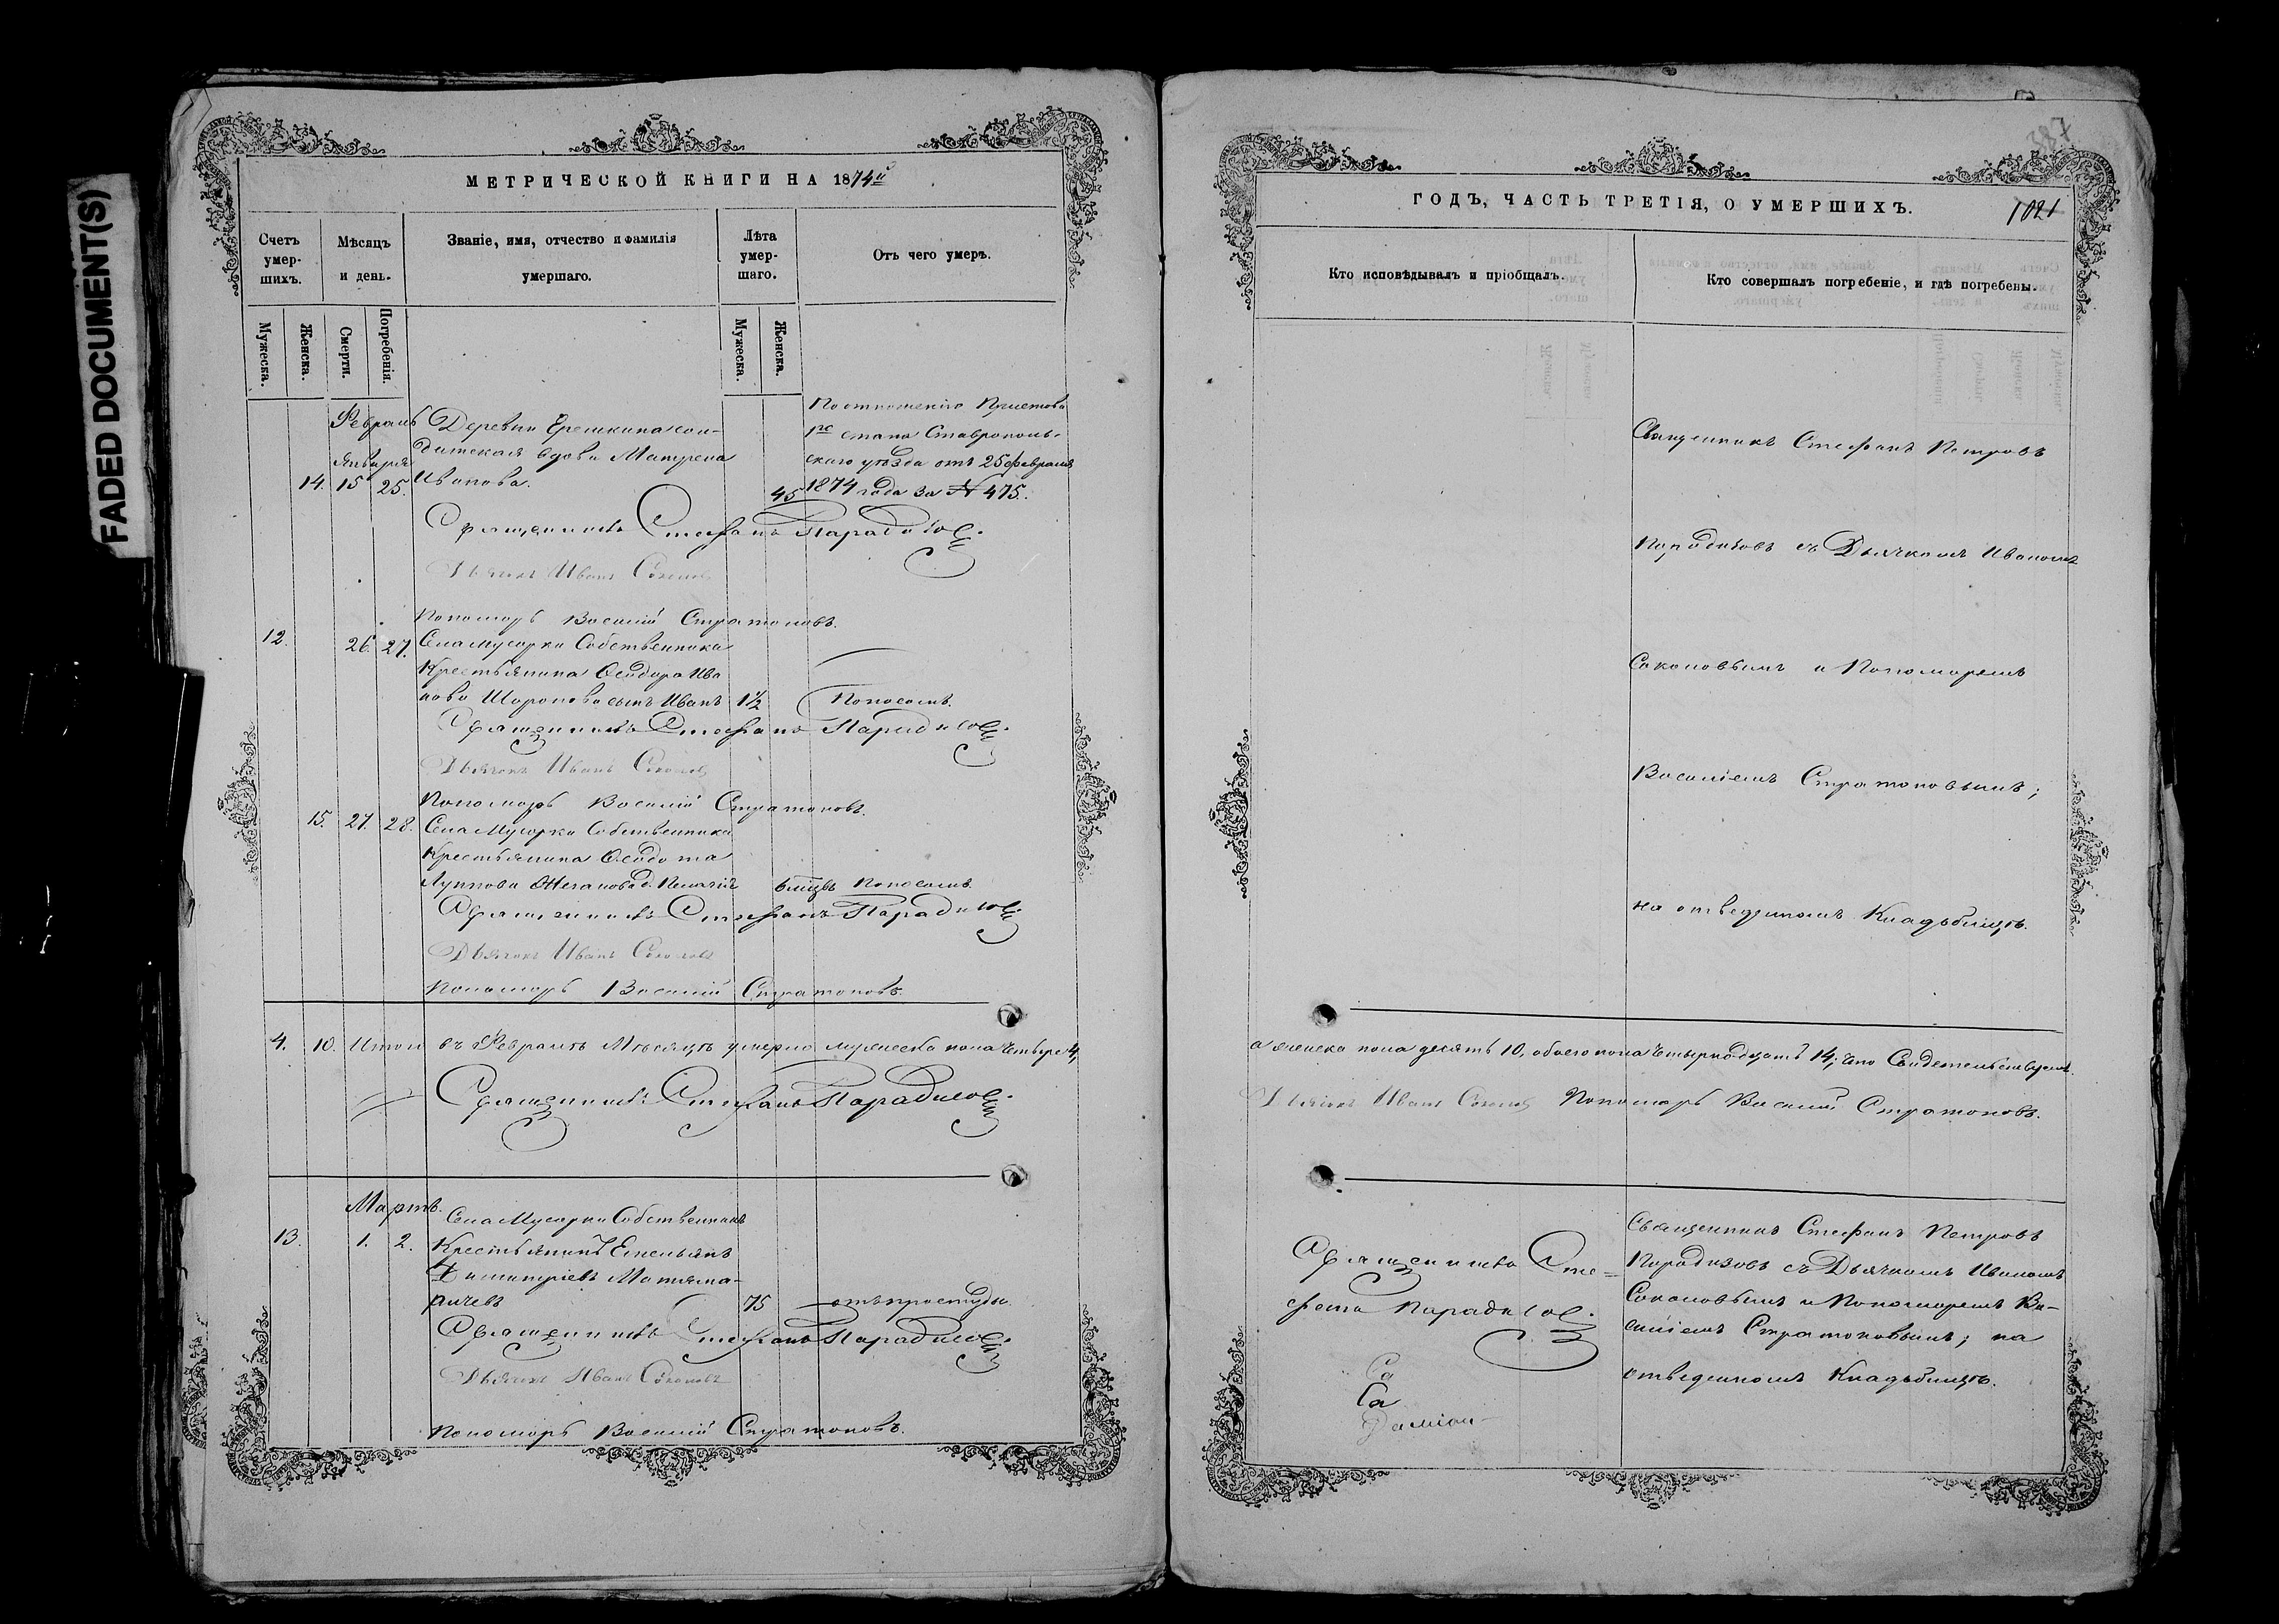 FADED DOCUMENT(S)
МЕТРИЧЕСКОЙ КНИГИ НА 1874й
Счетъ умер-шихъ.
Мѣсяцъ и день.
Званіе, имя, отчество и фамилія умершаго.
Лѣта умер-шаго.
Отъ чего умеръ.
Мужеска.
Женска.
Смерти.
Погребенія.
Мужеска.
Женска.
Февраль
Января
14. 15 25.
Деревни Ерешкина сол-
датская вдова Матрена
Иванова.
45
По отношенію Пристава
1го стана Ставрополь-
скаго уѣзда отъ 25 февраля
1874 года за № 475.
Священникъ Стефанъ Парадизов
Дьячекъ Иванъ Соколов
Пономарь Василій Стратоновъ.
12. 26. 27.
Села Мусорки Собственника
Крестьянина Ѳеодора Ива
нова Шаронова сынъ Иванъ 1½ Поносомъ.
Священникъ Стефанъ Парадизов
Дьячекъ Иванъ Соколов
Пономарь Василій Стратоновъ.
15. 27. 28.
Села Мусорки Собственника
Крестьянина Ѳеодота
Поносомъ.
Священникъ Стефанъ Парадизов
Дьячекъ Иванъ Соколовъ
Пономарь Василій Стратоновъ.
4. 10. Итого въ Февралѣ Мѣсяцѣ умерло мужеска пола четыре 4,
Священникъ Стефанъ Парадизов
Мартъ.
13. 1. 2.
Села Мусорки Собственникъ
Крестьянинъ Емельянъ
Димитріевъ
75 отъ простуды.
Священникъ Стефанъ Парадизов
Дьячекъ Иванъ Соколовъ
Пономарь Василій Стратоновъ.
387
ГОДЪ, ЧАСТЬ ТРЕТІЯ, О УМЕРШИХЪ.
1021
Кто исповѣдывалъ и пріобщалъ.
Кто совершалъ погребеніе, и гдѣ погребены.
Священникъ Стефанъ Петровъ
Парадизовъ съ Дьячкомъ Иваномъ
Соколовымъ и Пономаремъ
Василіемъ Стратоновымъ;
на отведенномъ Кладьбищѣ.
а женска пола десять 10, обоего пола четырнадцать 14; что Свидетельствуемъ.
Дьячекъ Иванъ Соколов Пономарь Василій Стратоновъ.
Священникъ Сте=
фанъ Парадизов
Са
Са
Даміан
Священникъ Стефанъ Петровъ
Парадизовъ съ Дьячкомъ Иваномъ
Соколовымъ и Пономаремъ Ва-
силіемъ Стратоновымъ; на
отведенномъ Кладьбищѣ.